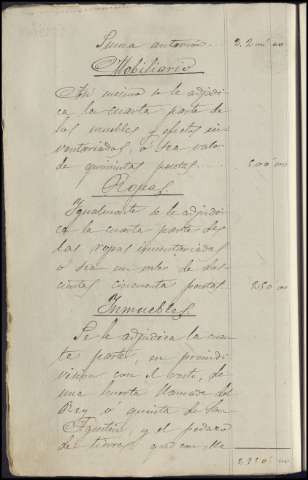 Suma anterior. 2.2
Mobiliario
Así mismo se le adjudi-
ca la cuarta parte de
los muebles y efectos in-
ventariados, ó sea valor
de quinientas pesetas. 500
Ropas
Igualmente se le adjudi-
ca la cuarta parte de
las ropas inventariadas
ó sea un valor de dos-
cientas cincuenta pesetas. 250
Inmuebles
Se le adjudica la cuar-
ta parte, en proindi-
vision con el resto, de
una huerta llamada del
Rey ó quinta de San
Agustin, y el pedazo
de tierra que con ella